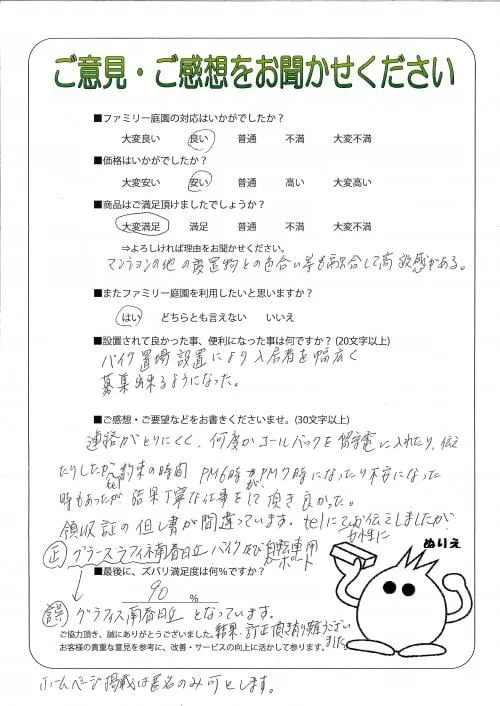 ご意見・ご感想をお聞かせください
■ファミリー庭園の対応はいかがでしたか？
大変良い 良い 普通 不満 大変不満
■価格はいかがでしたか？
大変安い 安い 普通 高い 大変高い
■商品はご満足頂けましたでしょうか？
大変満足 満足 普通 不満 大変不満
⇒よろしければ理由をお聞かせください。
マンションの他の設置物との色合い等も融合して高級感がある。
■またファミリー庭園を利用したいと思いますか？
はい どちらとも言えない いいえ
■設置されて良かった事、便利になった事は何ですか？(20文字以上)
バイク置場設置により入居者を幅広く
募集出来るようになった。
■ご感想・ご要望などをお書きくださいませ。(30文字以上)
連絡がとりにくく、何度かコールバックを留守電に入れたり、伝え
たりしたが 約束の時間 PM6時がPM7時になったり不安になった
tel
時もあったが 結果丁寧な仕事をして頂き良かった。
領収証の但し書が間違っています。telにてお伝えしましたが
正 グラースラフィネ南春日丘 バイク及び自転車用
カーポート
ぬりえ
■最後に、ズバリ満足度は何％ですか？
90 %
誤 グラフィス南春日丘 となっています。
ご協力頂き、誠にありがとうございました。結果、訂正頂き有り難うござい
お客様の貴重な意見を参考に、改善・サービスの向上に活かして参ります。ました。
ホームページ掲載は匿名のみ可とします。